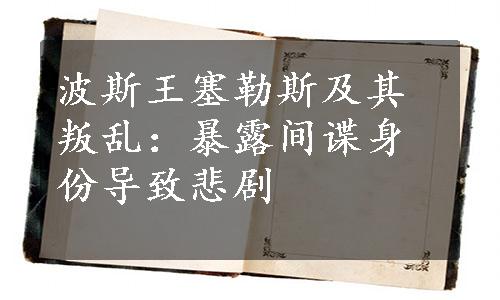 波斯王塞勒斯及其
叛乱：暴露间谍身
份导致悲剧